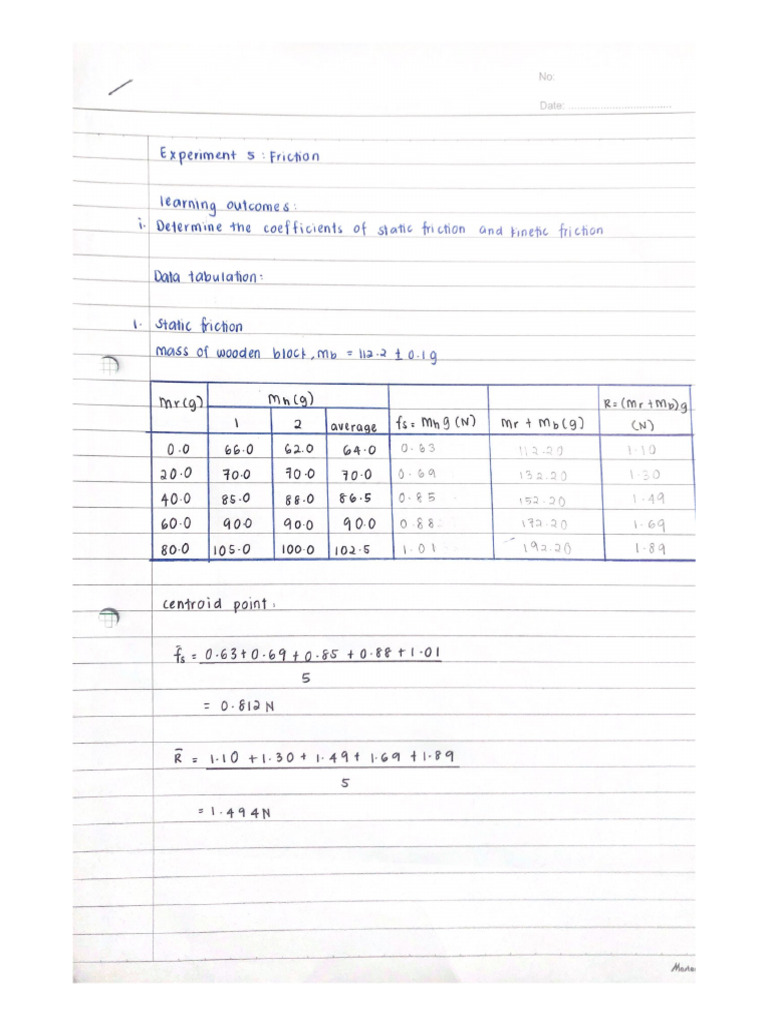 No:
Date: ....................................
Experiment 5 : Friction
learning outcomes:
i. Determine the coefficients of static friction and kinetic friction
Data tabulation:
1. Static friction
mass of wooden block, mb = 112.2 ± 0.1g
mr(g) mh(g) fs = mhg (N) mr + mb (g) R = (mr + mb)g (N)
1 2 average
0.0 66.0 62.0 64.0 0.63 112.20 1.10
20.0 70.0 70.0 70.0 0.69 132.20 1.30
40.0 85.0 88.0 86.5 0.85 152.20 1.49
60.0 90.0 90.0 90.0 0.88 172.20 1.69
80.0 105.0 100.0 102.5 1.01 192.20 1.89
centroid point:
f̄s = 0.63 + 0.69 + 0.85 + 0.88 + 1.01
5
= 0.812 N
R̄ = 1.10 + 1.30 + 1.49 + 1.69 + 1.89
5
= 1.494N